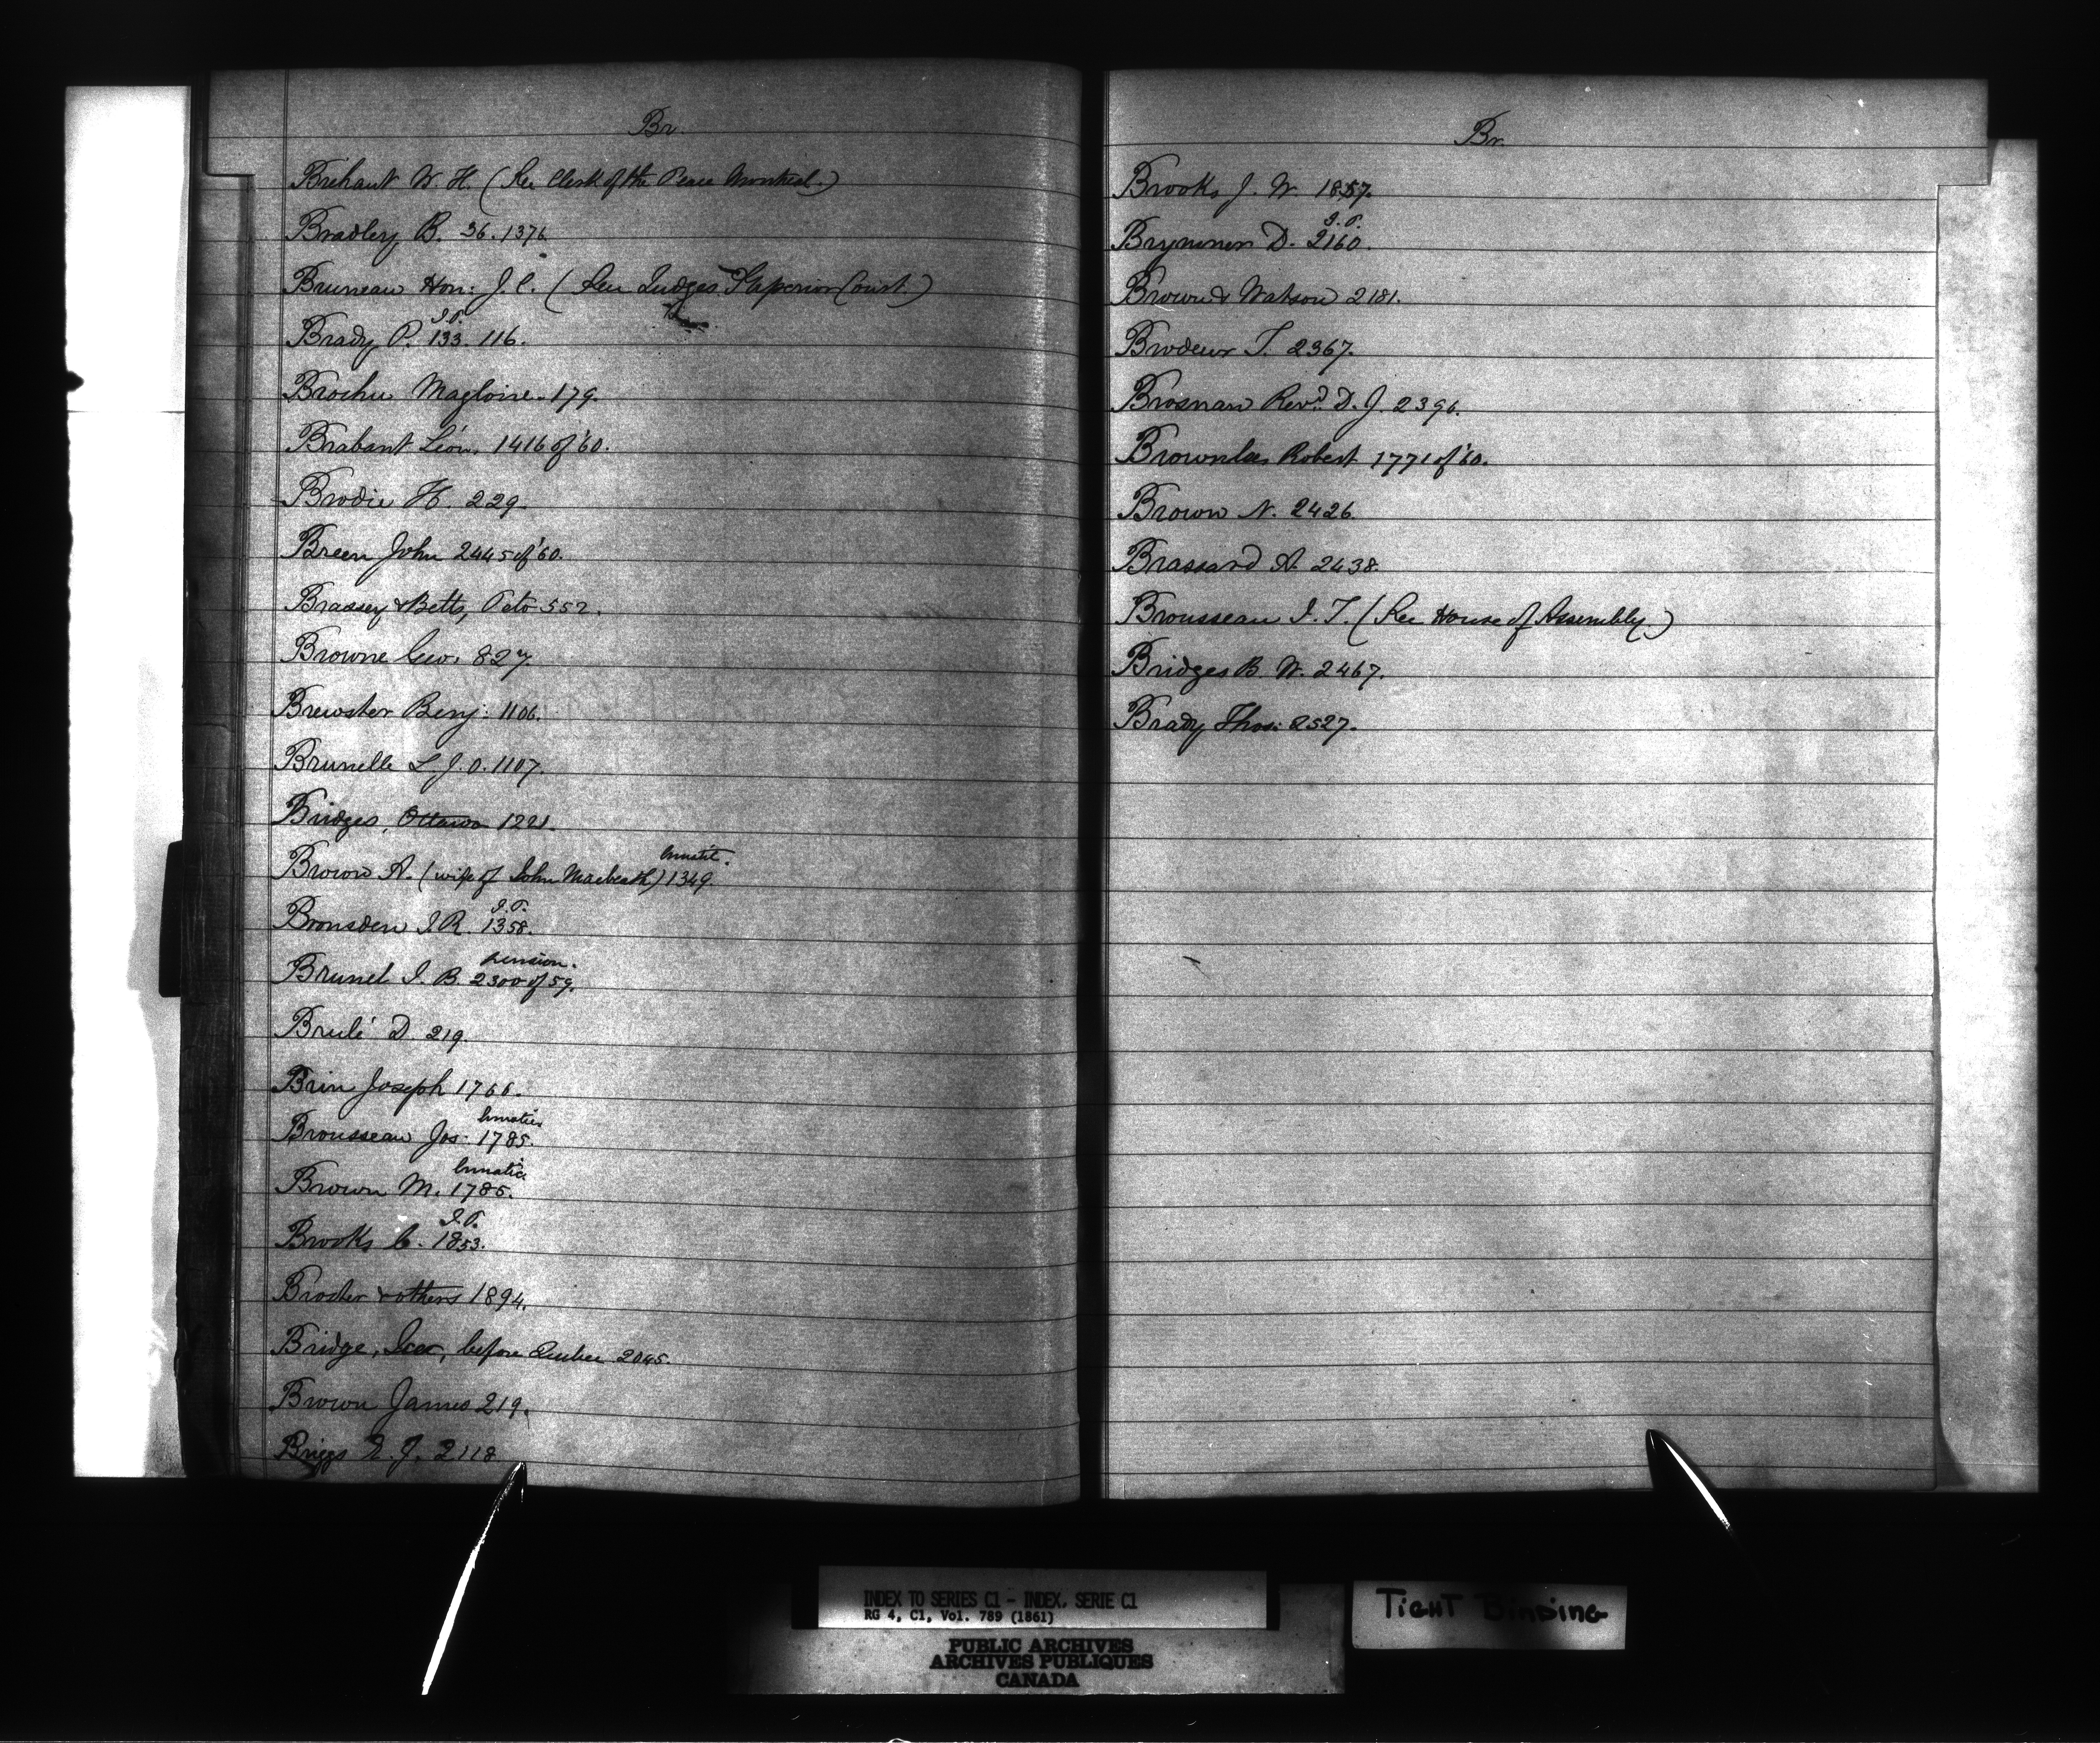 Br.
Brehaut W. H. (See Clerk of the Peace Montreal.)
Bradley B. 36. 1376
Bruneau Hon: J. C. (See Judges Superior Court)
J.P.
Brady P. 133. 116.
Brochu Magloire. 179.
Brabant Léon. 1416 of '60.
Brodie H. 229.
Breen John 2445 of '60.
Brassey & Betts, Peto 552.
Browne Geo. 827
Brewster Benj: 1106.
Brunelle L. J. O. 1107.
Bridges, Ottawa 1221.
lunatic.
Brown A. (wife of John Macbeath) 1349.
J.P.
Bronsden J. R. 1358.
pension.
Brunel J. B. 2300 of 59.
Brulé D. 219.
Brin Joseph 1766.
lunatic
Brousseau Jos. 1785.
lunatic
Brown M. 1785.
J.P.
Brooks C. 1853.
Broster & others 1894.
Bridge, Ice, before Quebec 2045.
Brown James 219.
Briggs E. J. 2118
Br.
Brooks J. W. 1857.
J.P.
Brymner D. 2160.
Brown & Watson 2181.
Brodeur T. 2367.
Brosnan Revd. D. J. 2396.
Brownlee Robert 1771 of '60.
Brown N. 2426.
Brassard A. 2438.
Brousseau J. T. (See House of Assembly.)
Bridges B. W. 2467.
Brady Thos: 2527.
INDEX TO SERIES C1 - INDEX, SERIE C1
RG 4, C1, Vol. 789 (1861)
PUBLIC ARCHIVES
ARCHIVES PUBLIQUES
CANADA
TIGHT BINDING